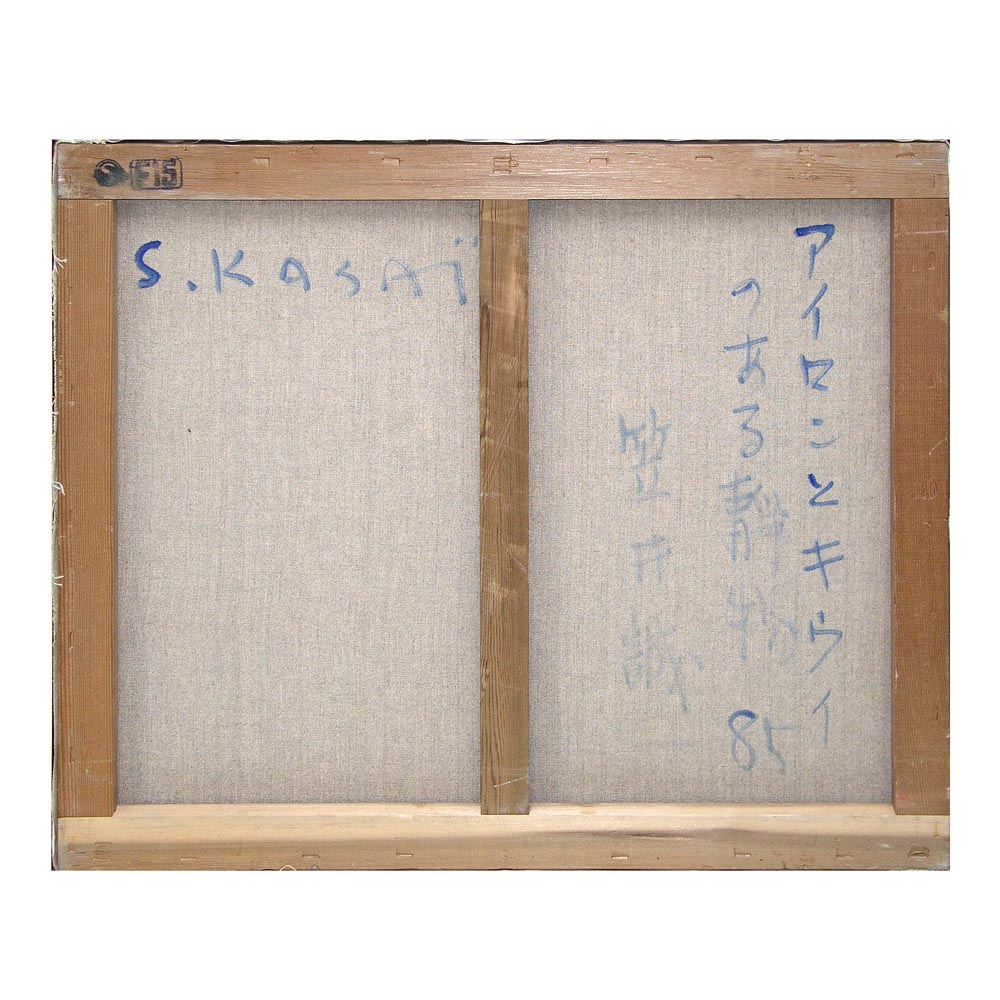 S F15
S. KASAÏ
アイロンとキウイ
のある静物
85
笠井誠一